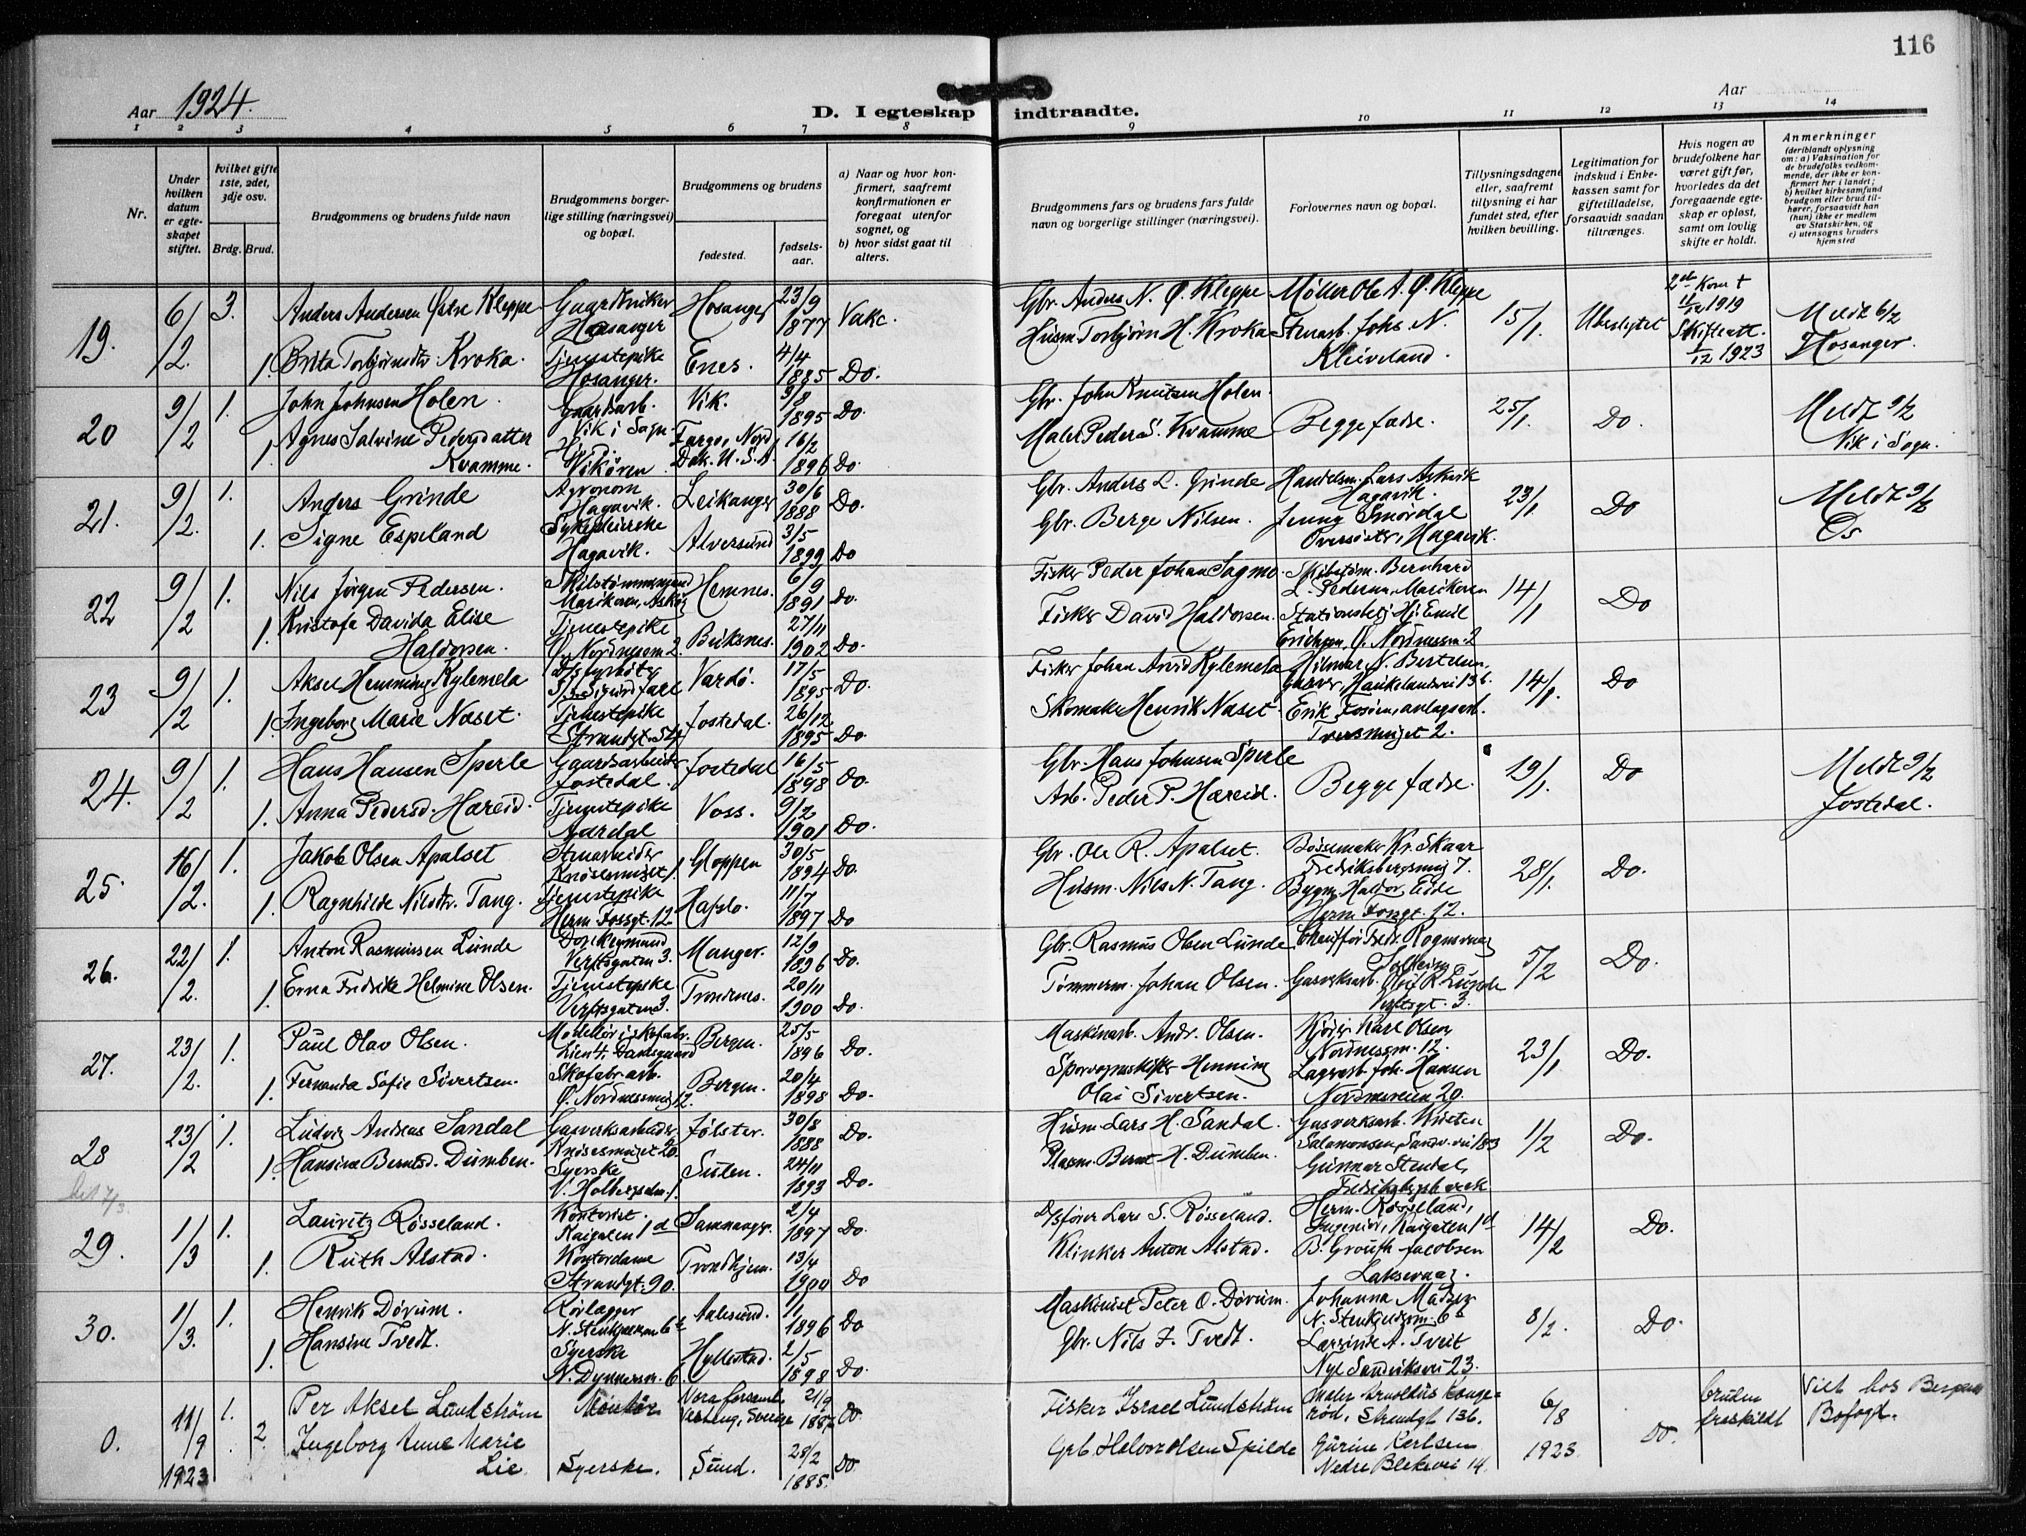 116
Aar 1924.
D. I egteskap indtraadte.
Aar
1 2 3 4 5 6 7 8 9 10 11 12 13 14
Nr.
Under hvilken datum er egteskapet stiftet.
hvilket gifte 1ste, 2det, 3dje osv.
Brdg. Brud.
Brudgommens og brudens fulde navn
Brudgommens borgerlige stilling (næringsvei) og bopæl.
Brudgommens og brudens
fødested.
fødselsaar.
a) Naar og hvor konfirmert, saafremt konfirmationen er foregaat utenfor sognet, og
b) hvor sidst gaat til alters.
Brudgommens fars og brudens fars fulde navn og borgerlige stillinger (næringsvei).
Forlovernes navn og bopæl.
Tillysningsdagene eller, saafremt tillysning ei har fundet sted, efter hvilken bevilling.
Legitimation for indskud i Enkekassen samt for giftetilladelse, forsaavidt saadan tiltrænges.
Hvis nogen av brudefolkene har været gift før, hvorledes da det foregaaende egteskap er opløst, samt om lovlig skifte er holdt.
Anmerkninger
(deriblandt oplysning om: a) Vaksination for de brudefolks vedkommende, der ikke er konfirmert her i landet; b) hvilket kirkesamfund brudgom eller brud tilhører, forsaavidt han (hun) ikke er medlem av Statskirken, og c) utensogns bruders hjemsted
19. 6/2. 3. Anders Andersen Østre Kleppe Gaardbruker Hosanger Hosanger 23/9 1877 Vakc. Gbr. Anders N. Ø. Kleppe Møller Ole A. Ø. Kleppe 15/1. Ubeskyttet 1919 Skifteatt. 1/12 1923 Meldt 6/2 Hosanger.
1. Brita Torbjørnsdtr. Kroka. Tjenestepike Hosanger. Enes. 4/4 1885 Do. Husm. Torbjørn H. Kroka Stenarb. Johs. N. Kleiveland.
20 9/2 1. John Johnsen Holen. Gaardsarb. Vik i Sogn Vik. 9/8 1895 Do. Gbr. John Knutsen Holen. Begge fædre. 25/1. Do. Meldt 9/2 Vik i Sogn.
1. Agnes Salvine Pedersdatter Kvamme. Vikøren Fargo, Nord Dak. U.S.A. 16/2 1896 Do. Maler Peder S. Kvamme
21. 9/2. 1. Anders Grinde Agronom Hagavik. Leikanger 30/6 1888 Do. Gbr. Anders L. Grinde Handelsm. Lars Askvik Hagavik. 23/1 Do Meldt 9/2 Os
1. Signe Espeland Sykepleierske Hagavik. Alversund 3/5 1899 Do Gbr. Berge Nilsen. Jenny Smørdal Oversøster, Hagavik.
22 9/2 1. Nils Jørgen Pedersen. Marikoven, Askøy Hemnes. 6/9 1891 Do. Fisker Peder Johan Sagmo. Skibstøm. Bernhard L. Pedersen, Marikoven 14/1 Do
1. Kristofa Davida Elise Haldorsen. Tjenestepike Ø. Nordnessm 2. 27/11 1902 Do. Fisker David Haldorsen. Emil Erichsen, Ø. Nordnessm. 2
23 9/2 1. Aksel Henning Kylemela Vardø. 17/5 1895 Do. Fisker Johan Arvid Kylemela Hilmar N. Bertelsen, Haukelandsvei 136. 14/1 Do
1. Ingeborg Marie Næset. Tjenestepike Strandgt. Jostedal. 26/12 1895 Do Skomaker Henrik Næset. Erik Fosøen, anlagsarb. Tversmuget 2.
24. 9/2 1. Hans Hansen Sperle Gaardsarbeider Jostedal. Jostedal 16/5 1898 Do. Gbr. Hans Johnsen Sperle Begge fædre. 19/1. Do Meldt 9/2 Jostedal.
1. Anna Pedersd. Hæreid. Tjenestepike Aardal Voss. 9/2 1901 Do. Arb. Peder P. Hæreid.
25. 16/2. 1. Jakob Olsen Apalset Stenarbeider Knøsesmuget 1. Gloppen 30/5 1894 Do. Gbr. Ole R. Apalset. Bøssemaker Kr. Skaar Fredriksbergsmug 7. 28/1. Do.
1. Ragnhilde Nilsdtr. Tang. Tjenestepike Herm. Fossgt. 12 Hafslo. 11/7 1897 Do Husm. Nils N. Tang. Bygm. Haldor Eide Herm. Fossgt. 12.
26. 22/2. 1. Anton Rasmussen Lunde Donkeymand Verftsgaten 3. Manger. 12/9 1896 Do. Gbr. Rasmus Olsen Lunde Solheim 5/2 Do.
1. Erna Fredrikke Helmine Olsen. Tjenestepike Verftsgaten 3. Trondenes. 20/11 1900 Do. Tømmerm. Johan Olsen. Gasverksarb. Olaf R. Lunde Verftsgt. 3.
27. 23/2. 1. Paul Olav Olsen. Modellør i skofabr. Lien 4. Bergen. 25/5 1896 Do. Maskinarb. Andr. Olsen. Kjører Karl Olsen Nordnessm. 12. 23/1 Do.
1. Fernanda Sofie Sivertsen. Skofabr. arb. Ø. Nordnessmug 12. Bergen. 20/4 1898 Do. Sporvognsskifter Henning Olai Sivertsen. Lagerarb. Joh. Hansen Nordnesveien 20.
28 23/2 1. Ludvig Andreas Sandal Gasverksarbeider Knøsesmuget 20. Jølster. 30/8 1888 Do. Husm. Lars H. Sandal. Gasverksarb. Kristen Salamonsen, Sandv. vei 183 1/2 Do.
1. Hansine Berntsd. Dumben. Syerske V. Holbergsalm. 1. Sulen. 24/11 1893 Do. Plasm. Bernt H. Dumben. Gunnar Stendal,
29. 1/3 1. Lauritz Røsseland. Kontorist. Kaigaten 1d Samnanger. 2/4 1897 Do. Lars S. Røsseland. Herm. Røsseland, Ingeniør, Kaigaten 1d 14/2 Do.
1. Ruth Alstad. Kontordame Strandgt. 90. Trondhjem. 13/4 1900 Do Klinker Anton Alstad. B. Grouth Jacobsen Laksevaag.
30. 1/3. 1. Henrik Dørum. Rørlægger Aalesund. 1/1 1896 Do Maskinist Peter O. Dørum. Johanna Madsen 8/2. Do.
1. Hansine Tvedt. Syerske N. Dynnersm. 6. Hyllestad. 2/5 1898 Do. Gbr. Nils J. Tvedt. Larsinde A. Tveit Nye Sandviksvei 23.
0. 11/9 1923 1. Per Aksel Lundstrøm Montør Nora Verm. Sverige 21/9 1887 Do. Fisker Israel Lundstrøm Maler Arnoldus Kongerød, Strandgt 136. 6/8 1923 Do. bruden fraskildt Viet hos Bergens Byfogd.
2. Ingeborg Anne Marie Lie Syerske. Sund. 28/2 1885. Do Grb Helvor Olsen Spilde Gurine Karlsen Nedre Blekevei 14.